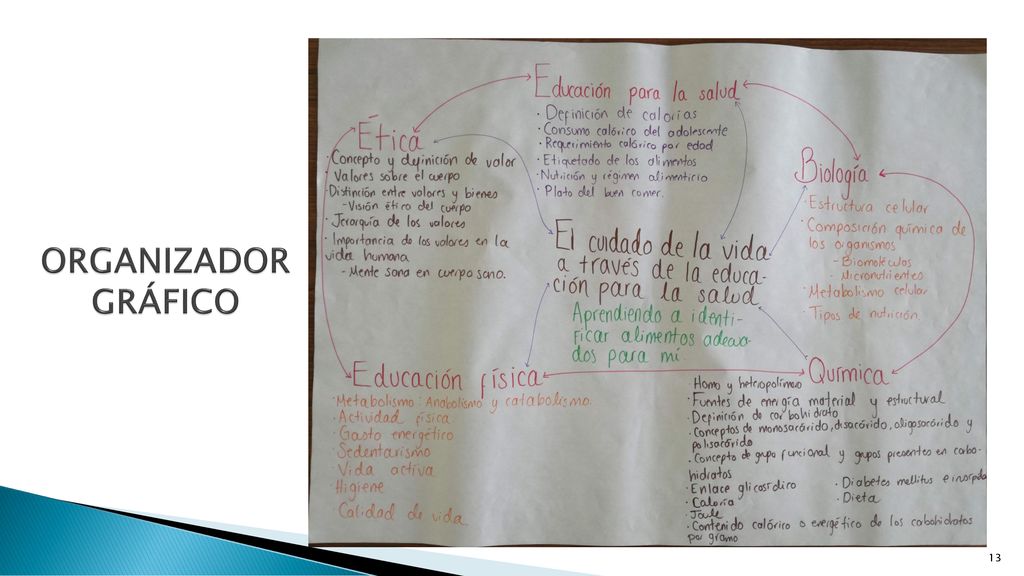 ORGANIZADOR
GRÁFICO
Educación para la salud
· Definición de calorías
· Consumo calórico del adolescente
· Requerimiento calórico por edad
· Etiquetado de los alimentos
· Nutrición y régimen alimenticio
· Plato del buen comer.
Ética
· Concepto y definición de valor
· Valores sobre el cuerpo
· Distinción entre valores y bienes
- Visión ético del cuerpo
· Jerarquía de los valores
· Importancia de los valores en la
vida humana
- Mente sana en cuerpo sano.
Biología
· Estructura celular
· Composición química de
los organismos
- Biomoléculas
- Micronutrientes
· Metabolismo celular
· Tipos de nutrición.
El cuidado de la vida
a través de la educa-
ción para la salud
Aprendiendo a identi-
ficar alimentos adecua-
dos para mí.
Educación física
· Metabolismo: Anabolismo y catabolismo.
· Actividad física.
· Gasto energético
· Sedentarismo
· Vida activa
· Higiene
· Calidad de vida
Química
· Homo y heteropolímero
· Fuentes de energía material y estructural
· Definición de carbohidrato
· Conceptos de monosacárido, disacárido, oligosacárido y
polisacárido
· Concepto de grupo funcional y grupos presentes en carbo-
hidratos
· Enlace glicosídico
· Caloría
· Joule
· Contenido calórico o energético de los carbohidratos
por gramo
· Diabetes mellitus e
· Dieta
13